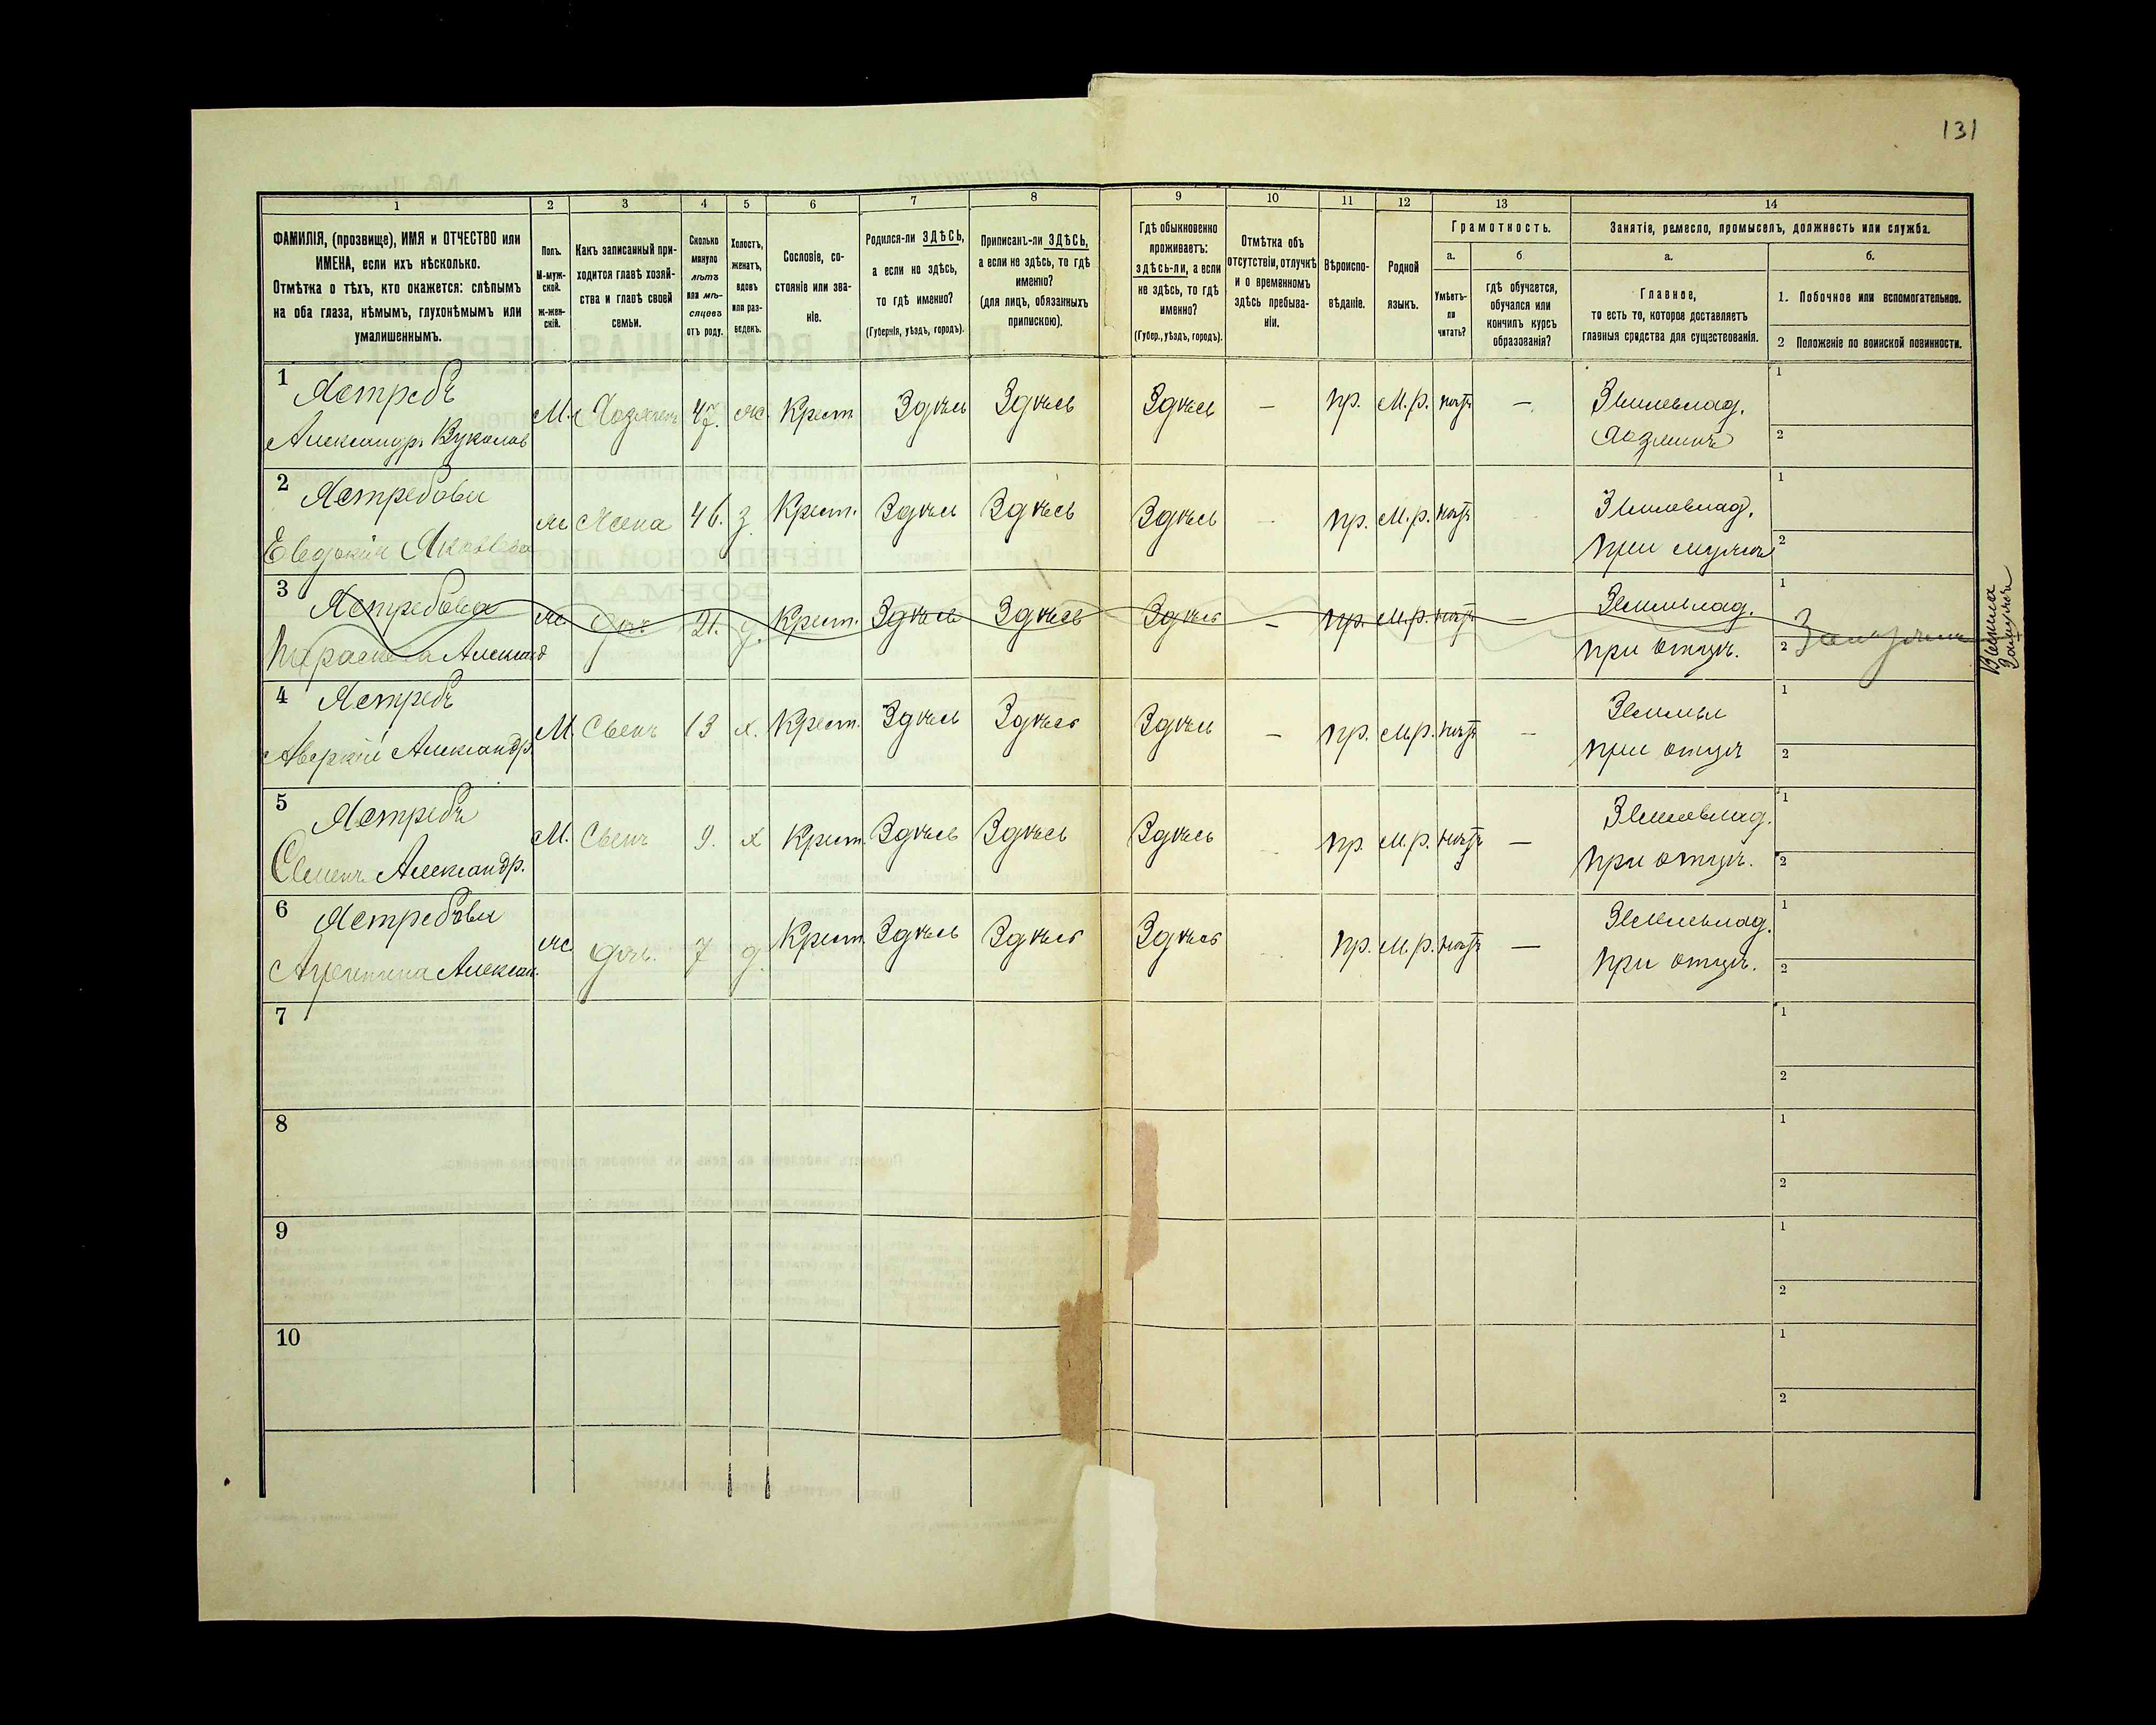 131
1 2 3 4 5 6 7 8 9 10 11 12 13 14
ФАМИЛІЯ, (прозвище), ИМЯ и ОТЧЕСТВО или
ИМЕНА, если ихъ нѣсколько.
Отмѣтка о тѣхъ, кто окажется: слѣпымъ
на оба глаза, нѣмымъ, глухонѣмымъ или
умалишеннымъ.
Полъ.
М-муж-
ской.
ж-жен-
скій.
Какъ записанный при-
ходится главѣ хозяй-
ства и главѣ своей
семьи.
Сколько
минуло
лѣтъ
или мѣ-
сяцевъ
отъ роду.
Холостъ,
женатъ,
вдовъ
или раз-
веденъ.
Сословіе, со-
стояніе или зва-
ніе.
Родился-ли ЗДѢСЬ,
а если не здѣсь,
то гдѣ именно?
(Губернія, уѣздъ, городъ).
Приписанъ-ли ЗДѢСЬ,
а если не здѣсь, то гдѣ
именно?
(для лицъ, обязанныхъ
припискою).
Гдѣ обыкновенно
проживаетъ:
здѣсь-ли, а если
не здѣсь, то гдѣ
именно?
(Губер., уѣздъ, городъ).
Отмѣтка объ
отсутствіи, отлучкѣ
и о временномъ
здѣсь пребыва-
ніи.
Вѣроиспо-
вѣданіе.
Родной
языкъ.
Грамотность.
а.
Умѣетъ-
ли
читать?
б
гдѣ обучается,
обучался или
кончилъ курсъ
образованія?
Занятіе, ремесло, промыселъ, должность или служба.
а.
Главное,
то есть то, которое доставляетъ
главныя средства для существованія.
б.
1. Побочное или вспомогательное.
2 Положеніе по воинской повинности.
1 Ястребъ
Александръ Вуколов
М. Хозяинъ 47. ж. Крест. Здѣсь Здѣсь Здѣсь — пр. М.р. нѣтъ — Землевлад.
Хозяинъ
1
2
2 Ястребова
Евдокія Яковлева
ж Жена 46. з. Крест. Здѣсь Здѣсь Здѣсь пр. М.р. нѣтъ Землевлад.
при мужѣ
1
2
3 Ястребова
Параскева Александ
ж. дочь 21. д. Крест. Здѣсь Здѣсь Здѣсь — пр. М.р. нѣтъ — Землевлад.
при отцѣ.
1
2 Замужем
Вышла
Замужъ
4 Ястребъ
Аверкій Александр.
М. Сынъ 13 х. Крест. Здѣсь Здѣсь Здѣсь — пр. М.р. нѣтъ — Землевл
при отцѣ
1
2
5 Ястребъ
Семенъ Александр.
М. Сынъ 9. х Крест. Здѣсь Здѣсь Здѣсь пр. М.р. нѣтъ — Землевлад.
при отцѣ.
1
2
6 Ястребова
Алексан.
ж дочь. 7 д. Крест. Здѣсь Здѣсь Здѣсь пр. М.р. нѣтъ — Землевлад.
при отцѣ.
1
2
7
1
2
8
1
2
9
1
2
10
1
2